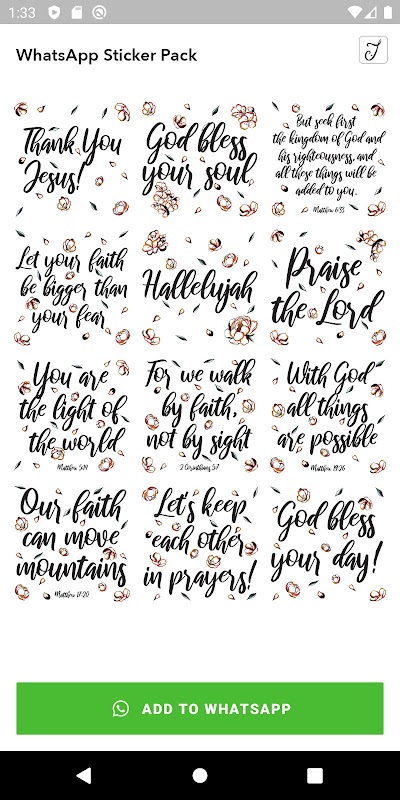 1:33
WhatsApp Sticker Pack
J
Thank You
Jesus!
God bless
your soul
But seek first
the kingdom of God and
his righteousness, and
all these things will be
added to you.
Matthew 6:33
Let your faith
be bigger than
your fear
Hallelujah
Praise
the Lord
You are
the light of
the world
Matthew 5:14
For we walk
by faith,
not by sight
2 Corinthians 5:7
With God
all things
are possible
Matthew 19:26
Our faith
can move
mountains
Matthew 17:20
Let's keep
each other
in prayers!
God bless
your day!
ADD TO WHATSAPP